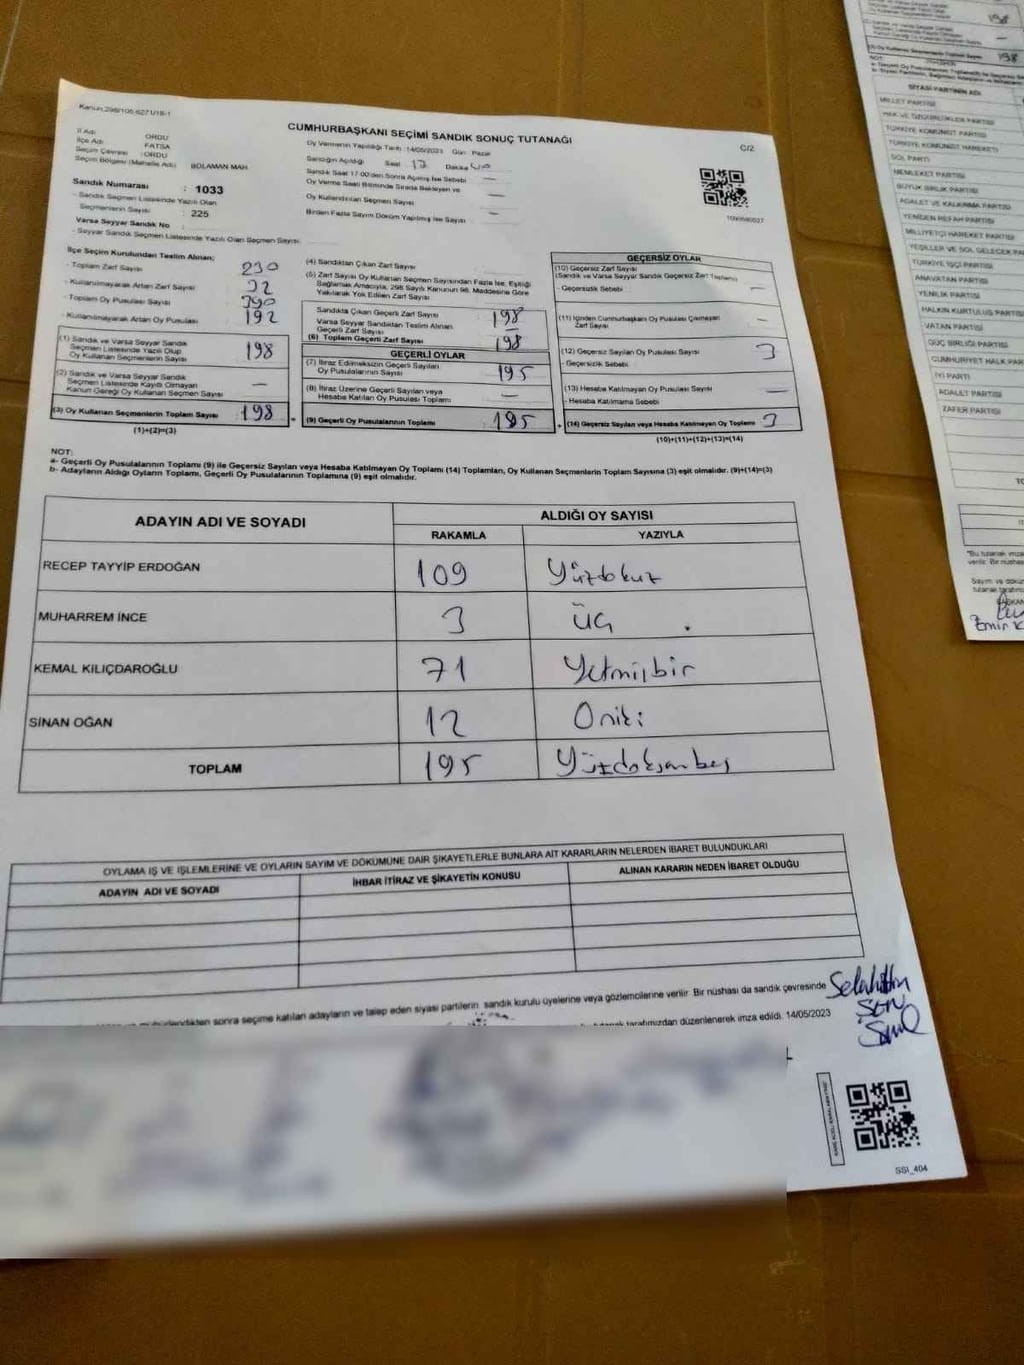 Kanun:298/105,6271/18-1
CUMHURBAŞKANI SEÇİMİ SANDIK SONUÇ TUTANAĞI
C/2
İl Adı : ORDU
İlçe Adı : FATSA
Seçim Çevresi : ORDU
Seçim Bölgesi (Mahalle Adı) : BOLAMAN MAH.
Sandık Numarası : 1033
- Sandık Seçmen Listesinde Yazılı Olan
Seçmenlerin Sayısı : 225
Varsa Seyyar Sandık No
- Seyyar Sandık Seçmen Listesinde Yazılı Olan Seçmen Sayısı
Oy Vermenin Yapıldığı Tarih : 14/05/2023 Gün : Pazar
Sandığın Açıldığı Saat 17 Dakika
Sandık Saat 17:00'den Sonra Açılmış İse Sebebi —
Oy Verme Saati Bitiminde Sırada Bekleyen ve
Oy Kullandırılan Seçmen Sayısı —
Birden Fazla Sayım Döküm Yapılmış İse Sayısı —
İlçe Seçim Kurulundan Teslim Alınan;
- Toplam Zarf Sayısı 230
- Kullanılmayarak Artan Zarf Sayısı 32
- Toplam Oy Pusulası Sayısı 390
- Kullanılmayarak Artan Oy Pusulası 192
(1) Sandık ve Varsa Seyyar Sandık
Seçmen Listesinde Yazılı Olup
Oy Kullanan Seçmenlerin Sayısı 198
(2) Sandık ve Varsa Seyyar Sandık
Seçmen Listesinde Kayıtlı Olmayan
Kanun Gereği Oy Kullanan Seçmen Sayısı —
(3) Oy Kullanan Seçmenlerin Toplam Sayısı 198
(1)+(2)=(3)
(4) Sandıktan Çıkan Zarf Sayısı
(5) Zarf Sayısı Oy Kullanan Seçmen Sayısından Fazla İse, Eşitliği
Sağlamak Amacıyla, 298 Sayılı Kanunun 98. Maddesine Göre
Yakılarak Yok Edilen Zarf Sayısı
Sandıkta Çıkan Geçerli Zarf Sayısı 198
Varsa Seyyar Sandıktan Teslim Alınan
Geçerli Zarf Sayısı —
(6) Toplam Geçerli Zarf Sayısı 198
GEÇERLİ OYLAR
(7) İtiraz Edilmeksizin Geçerli Sayılan
Oy Pusulalarının Sayısı 195
(8) İtiraz Üzerine Geçerli Sayılan veya
Hesaba Katılan Oy Pusulası Toplamı —
= (9) Geçerli Oy Pusulalarının Toplamı 195
GEÇERSİZ OYLAR
(10) Geçersiz Zarf Sayısı
(Sandık ve Varsa Seyyar Sandık Geçersiz Zarf Toplamı)
- Geçersizlik Sebebi : —
(11) İçinden Cumhurbaşkanı Oy Pusulası Çıkmayan
Zarf Sayısı —
(12) Geçersiz Sayılan Oy Pusulası Sayısı 3
- Geçersizlik Sebebi :
(13) Hesaba Katılmayan Oy Pusulası Sayısı —
- Hesaba Katılmama Sebebi
+ (14) Geçersiz Sayılan veya Hesaba Katılmayan Oy Toplamı 3
(10)+(11)+(12)+(13)=(14)
NOT:
a- Geçerli Oy Pusulalarının Toplamı (9) ile Geçersiz Sayılan veya Hesaba Katılmayan Oy Toplamı (14) Toplamları, Oy Kullanan Seçmenlerin Toplam Sayısına (3) eşit olmalıdır. (9)+(14)=(3)
b- Adayların Aldığı Oyların Toplamı, Geçerli Oy Pusulalarının Toplamına (9) eşit olmalıdır.
ADAYIN ADI VE SOYADI
ALDIĞI OY SAYISI
RAKAMLA YAZIYLA
RECEP TAYYİP ERDOĞAN 109 Yüzdokuz
MUHARREM İNCE 3 üç
KEMAL KILIÇDAROĞLU 71 Yetmişbir
SİNAN OĞAN 12 Oniki
TOPLAM 195 Yüzdoksanbeş
OYLAMA İŞ VE İŞLEMLERİNE VE OYLARIN SAYIM VE DÖKÜMÜNE DAİR ŞİKAYETLERLE BUNLARA AİT KARARLARIN NELERDEN İBARET BULUNDUKLARI
ADAYIN ADI VE SOYADI
İHBAR İTİRAZ VE ŞİKAYETİN KONUSU
ALINAN KARARIN NEDEN İBARET OLDUĞU
sonra seçime katılan adayların ve talep eden siyasi partilerin, sandık kurulu üyelerine veya gözlemcilerine verilir. Bir nüshası da sandık çevresinde
tarafımızdan düzenlenerek imza edildi. 14/05/2023
Selahattin
SSI_404
198
—
(3) Oy Kullanan Seçmenlerin Toplam Sayısı 198
NOT:
SİYASİ PARTİNİN ADI
MİLLET PARTİSİ
HAK VE ÖZGÜRLÜKLER PARTİSİ
TÜRKİYE KOMÜNİST PARTİSİ
TÜRKİYE KOMÜNİST HAREKETİ
SOL PARTİ
MEMLEKET PARTİSİ
BÜYÜK BİRLİK PARTİSİ
ADALET VE KALKINMA PARTİSİ
YENİDEN REFAH PARTİSİ
MİLLİYETÇİ HAREKET PARTİSİ
YEŞİLLER VE SOL GELECEK PA
TÜRKİYE İŞÇİ PARTİSİ
ANAVATAN PARTİSİ
YENİLİK PARTİSİ
HALKIN KURTULUŞ PARTİSİ
VATAN PARTİSİ
GÜÇ BİRLİĞİ PARTİSİ
CUMHURİYET HALK PAR
İYİ PARTİ
ADALET PARTİSİ
ZAFER PARTİSİ
"Bu tutanak imza
verilir. Bir nüshas
Sayım ve dökü
tutanak tarafım
BAŞKAN